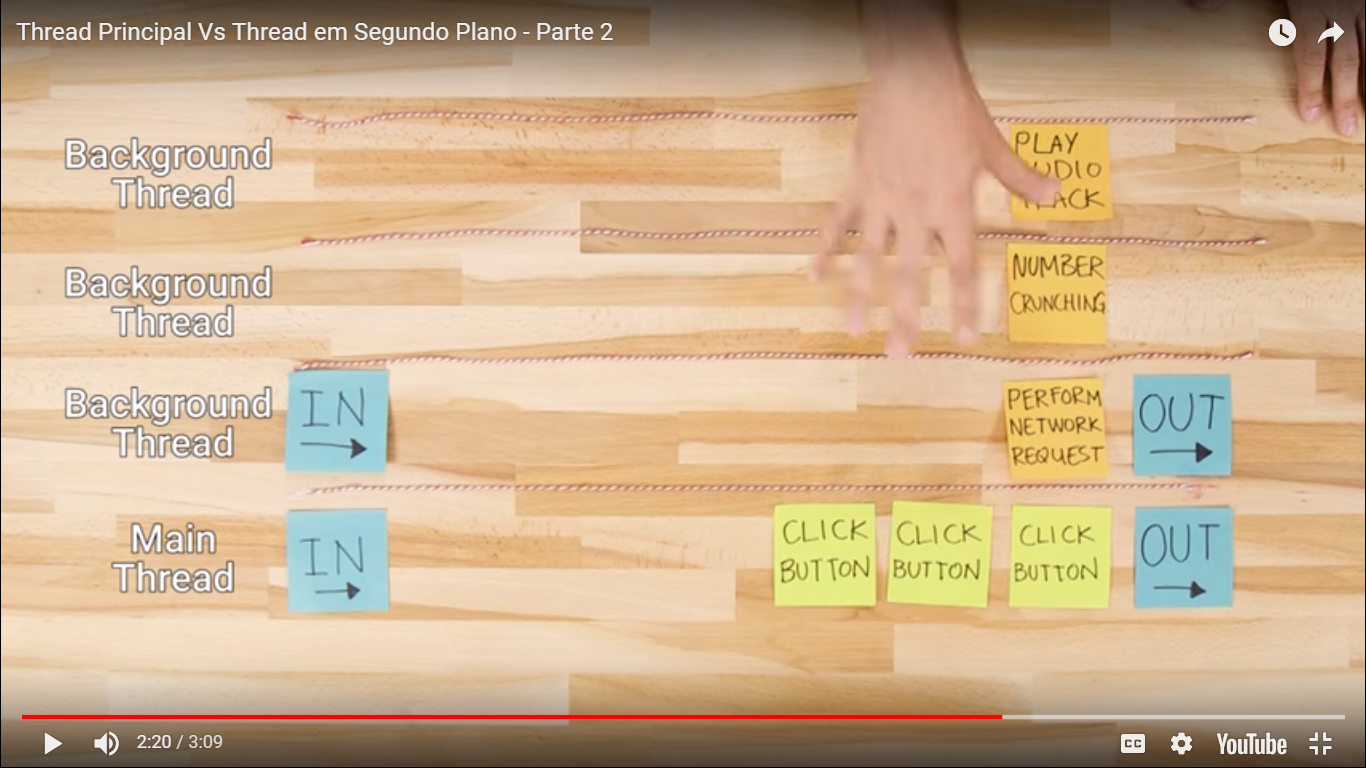 Thread Principal Vs Thread em Segundo Plano - Parte 2
Background
Thread
PLAY
Background
Thread
NUMBER
CRUNCHING
Background
Thread
IN
PERFORM
NETWORK
REQUEST
OUT
Main
Thread
IN
CLICK
BUTTON
CLICK
BUTTON
CLICK
BUTTON
OUT
2:20 / 3:09
CC
YouTube